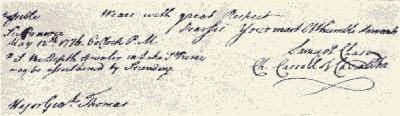 possible We are with great Respect
Dear Sir Your most Obt humble Servants
May 12th. 1776. 6 oClock P.M.
Samuel Chase
P.S. the Depth of water at the
Ch. Carroll of Carrollton
may be ascertained by Sounding
Major Genl. Thomas